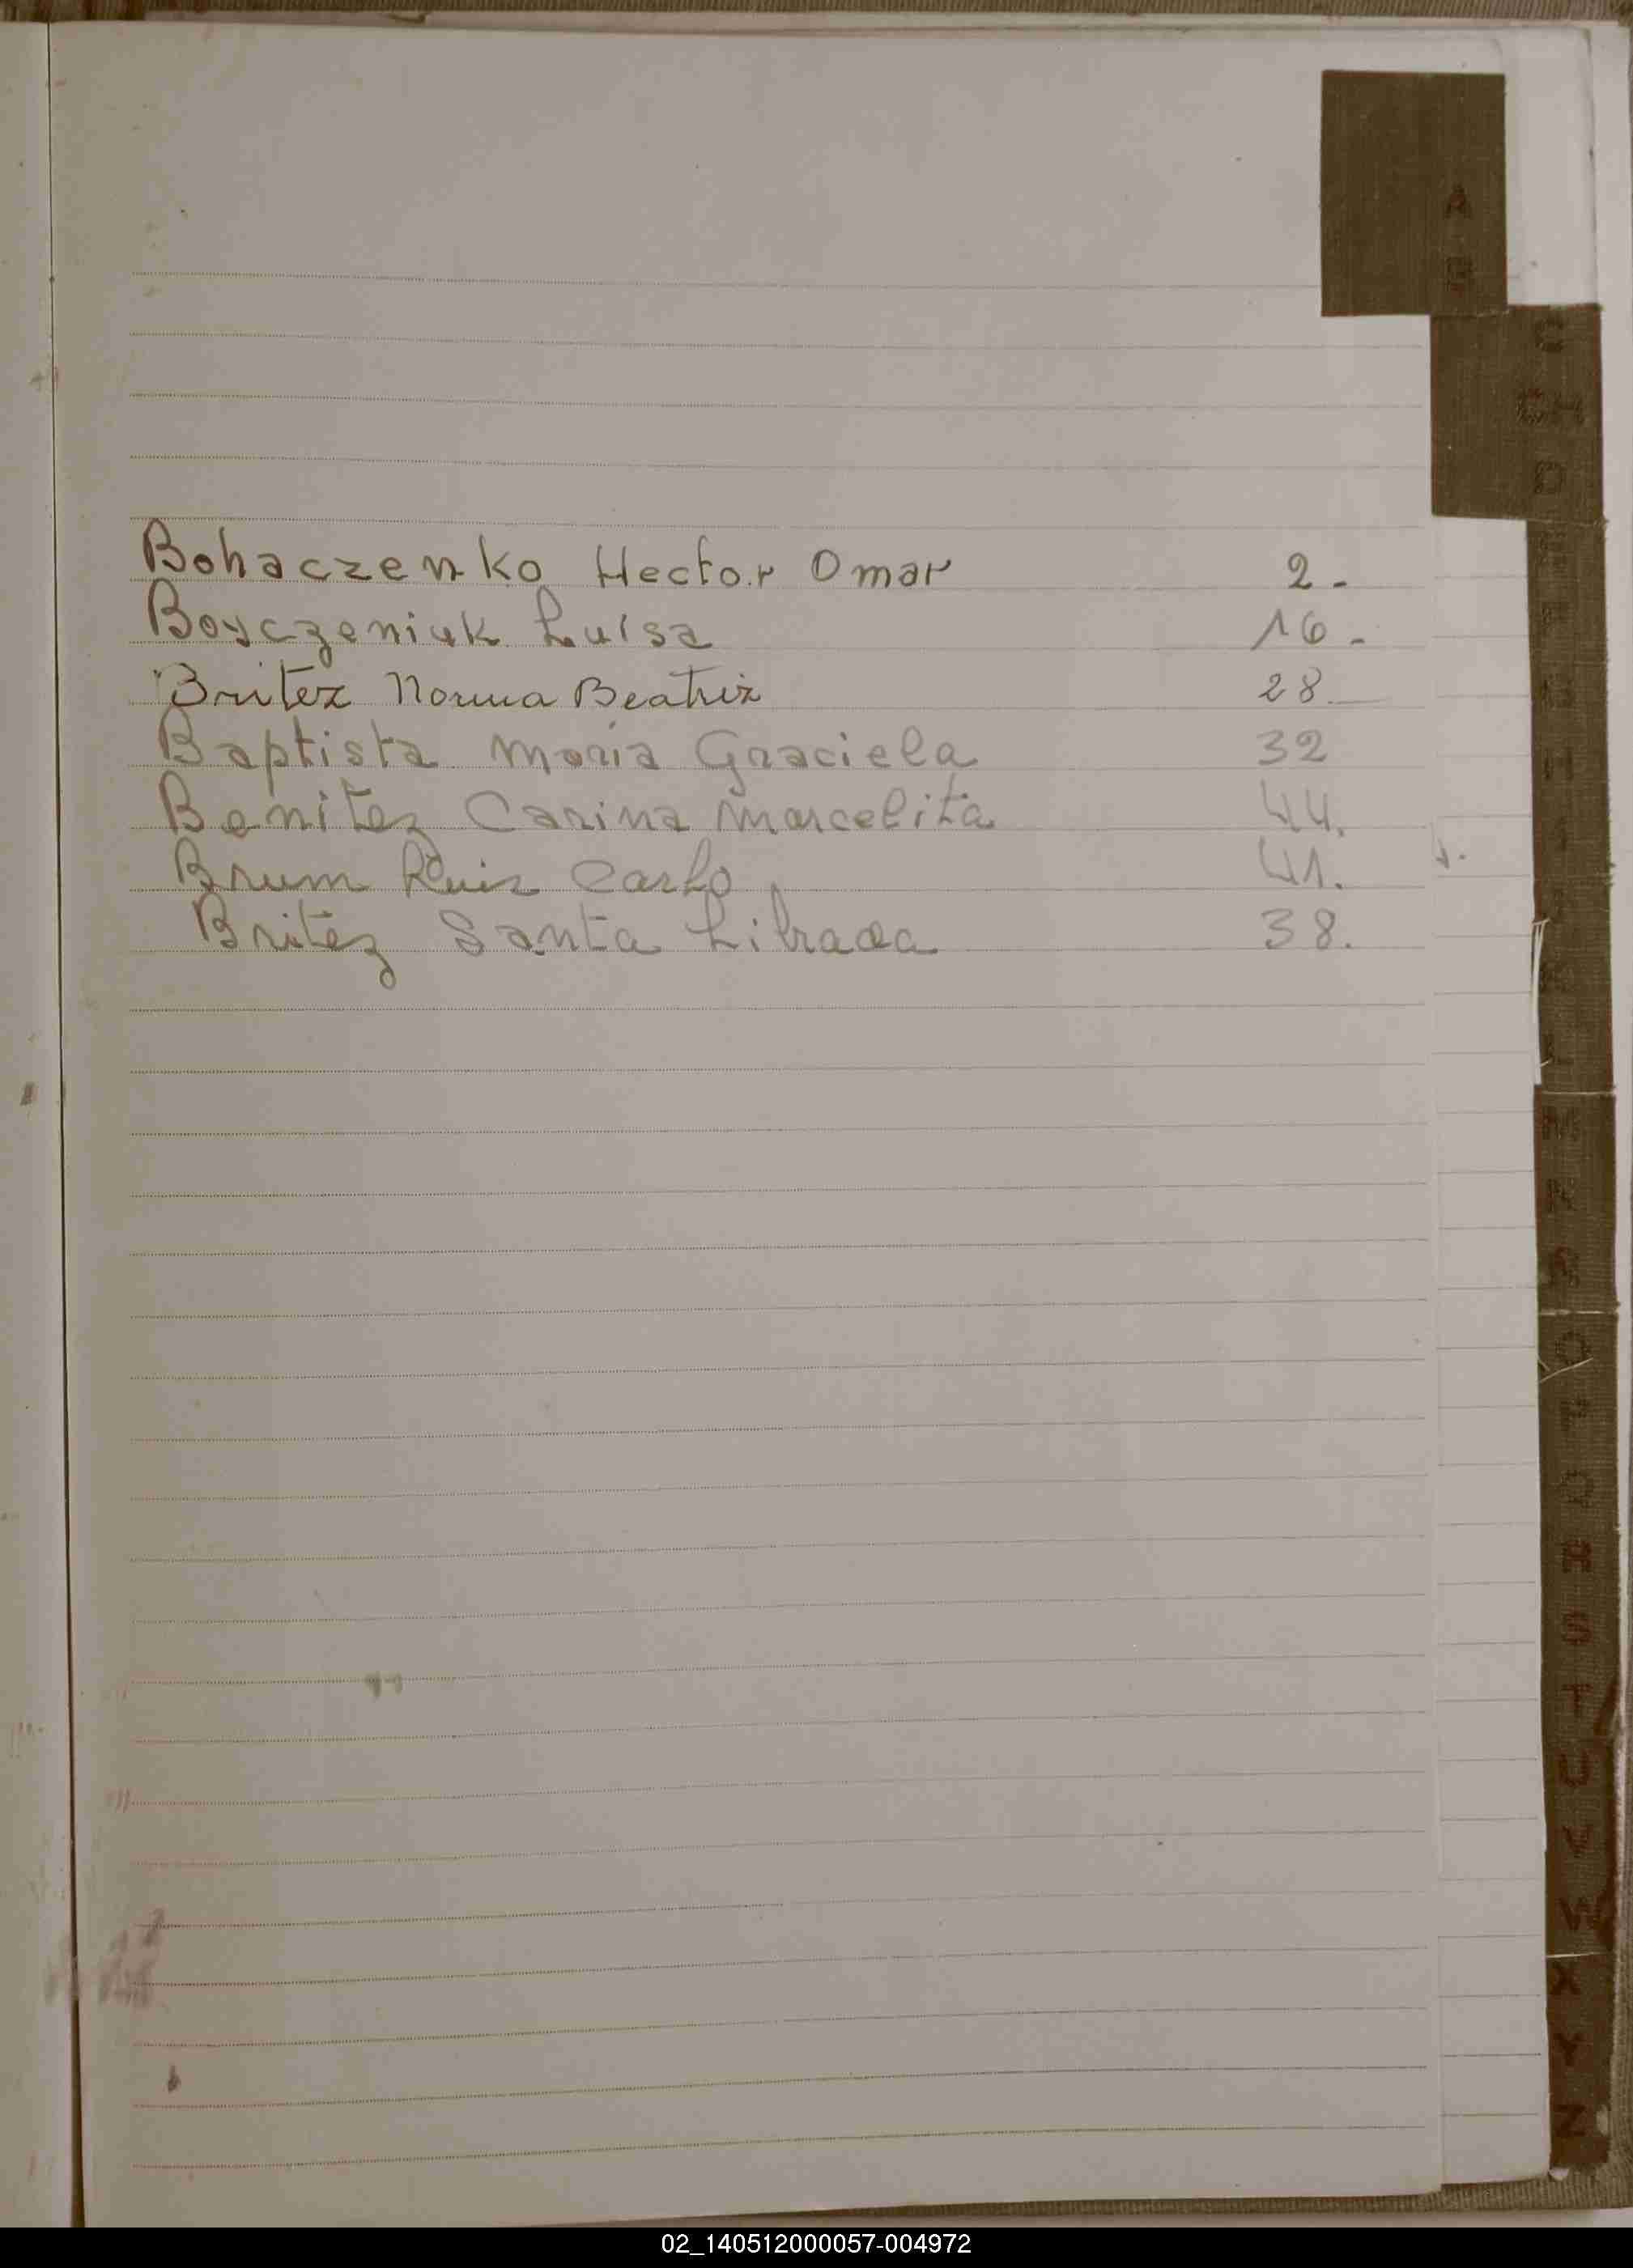 A
B
C
CH
D
Bohaczenko Hector Omar 2-
Boyczeniuk Luisa 16-
Britez Norma Beatriz 28
Baptista Maria Graciela 32
Benitez Carina Marcelita 44.
Brum Ruiz Carlo 41.
Britez Santa Librada 38.
M
N
O
Q
R
S
T
U
V
W
X
Y
Z
02_140512000057-004972